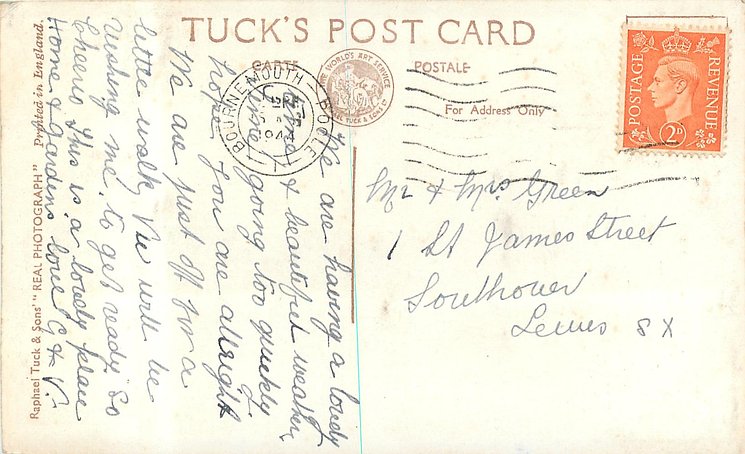 TUCK'S POST CARD
CARTE
POSTALE
THE WORLD'S ART SERVICE
RAPHAEL TUCK & SONS LTD
For Address Only
BOURNEMOUTH POOLE
POSTAGE
REVENUE
2D
We are having a lovely
time & beautiful weather,
time going too quickly I
hope you are allright
We are just off for a
little walk, Vic will be
wishing me to get ready So
Cheerio this is a lovely place
Home & Gardens love G & V.
Mr & Mrs Green
1 St James Street
Southover
Lewes SX
Raphael Tuck & Sons' "REAL PHOTOGRAPH" Printed in England.